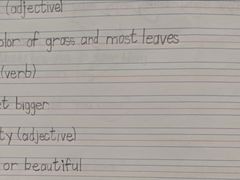 (adjective)
olor of grass and most leaves
(verb)
et bigger
ty (adjective)
or beautiful